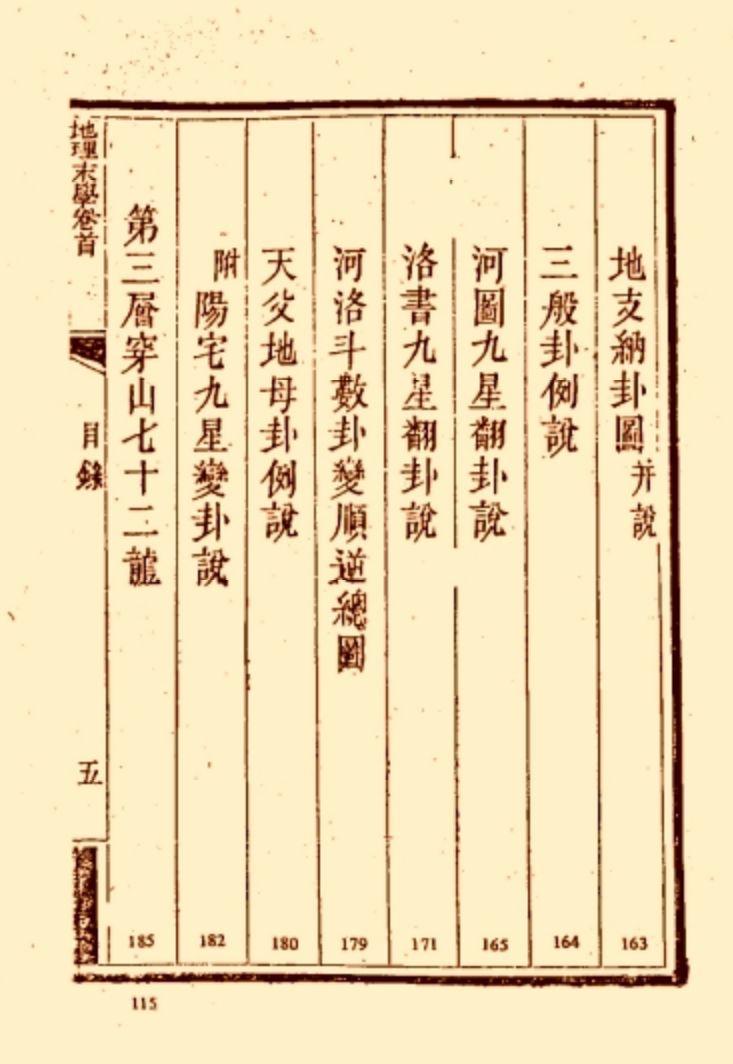 地支納卦圖 并說 163
三般卦例說 164
河圖九星翻卦說 165
洛書九星翻卦說 171
河洛斗數卦變順逆總圖 179
天父地母卦例說 180
附 陽宅九星變卦說 182
第三層穿山七十二龍 185
地理末學卷首 目錄 五
115